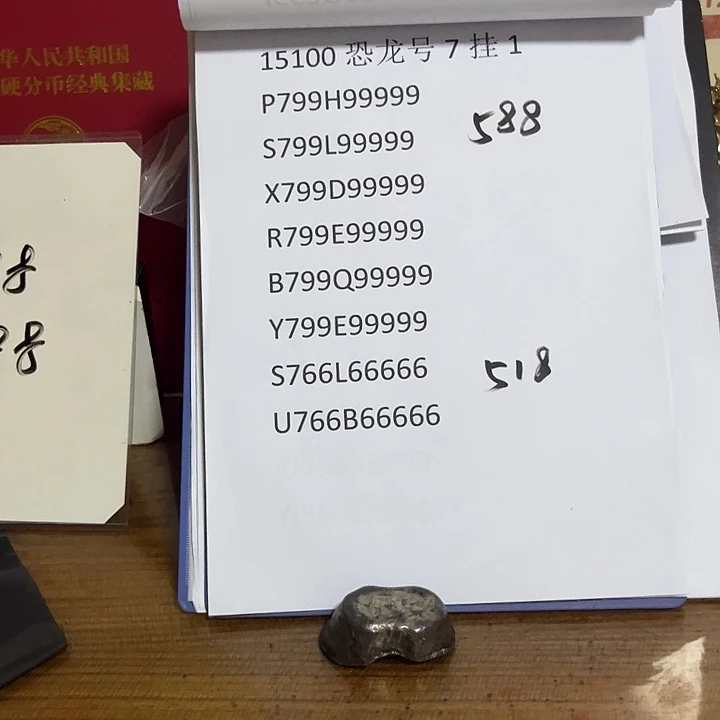 华人民共和国
硬分币经典集藏
15100 恐龙号 7 挂 1
P799H99999
588
S799L99999
X799D99999
R799E99999
B799Q99999
Y799E99999
S766L66666
518
U766B66666